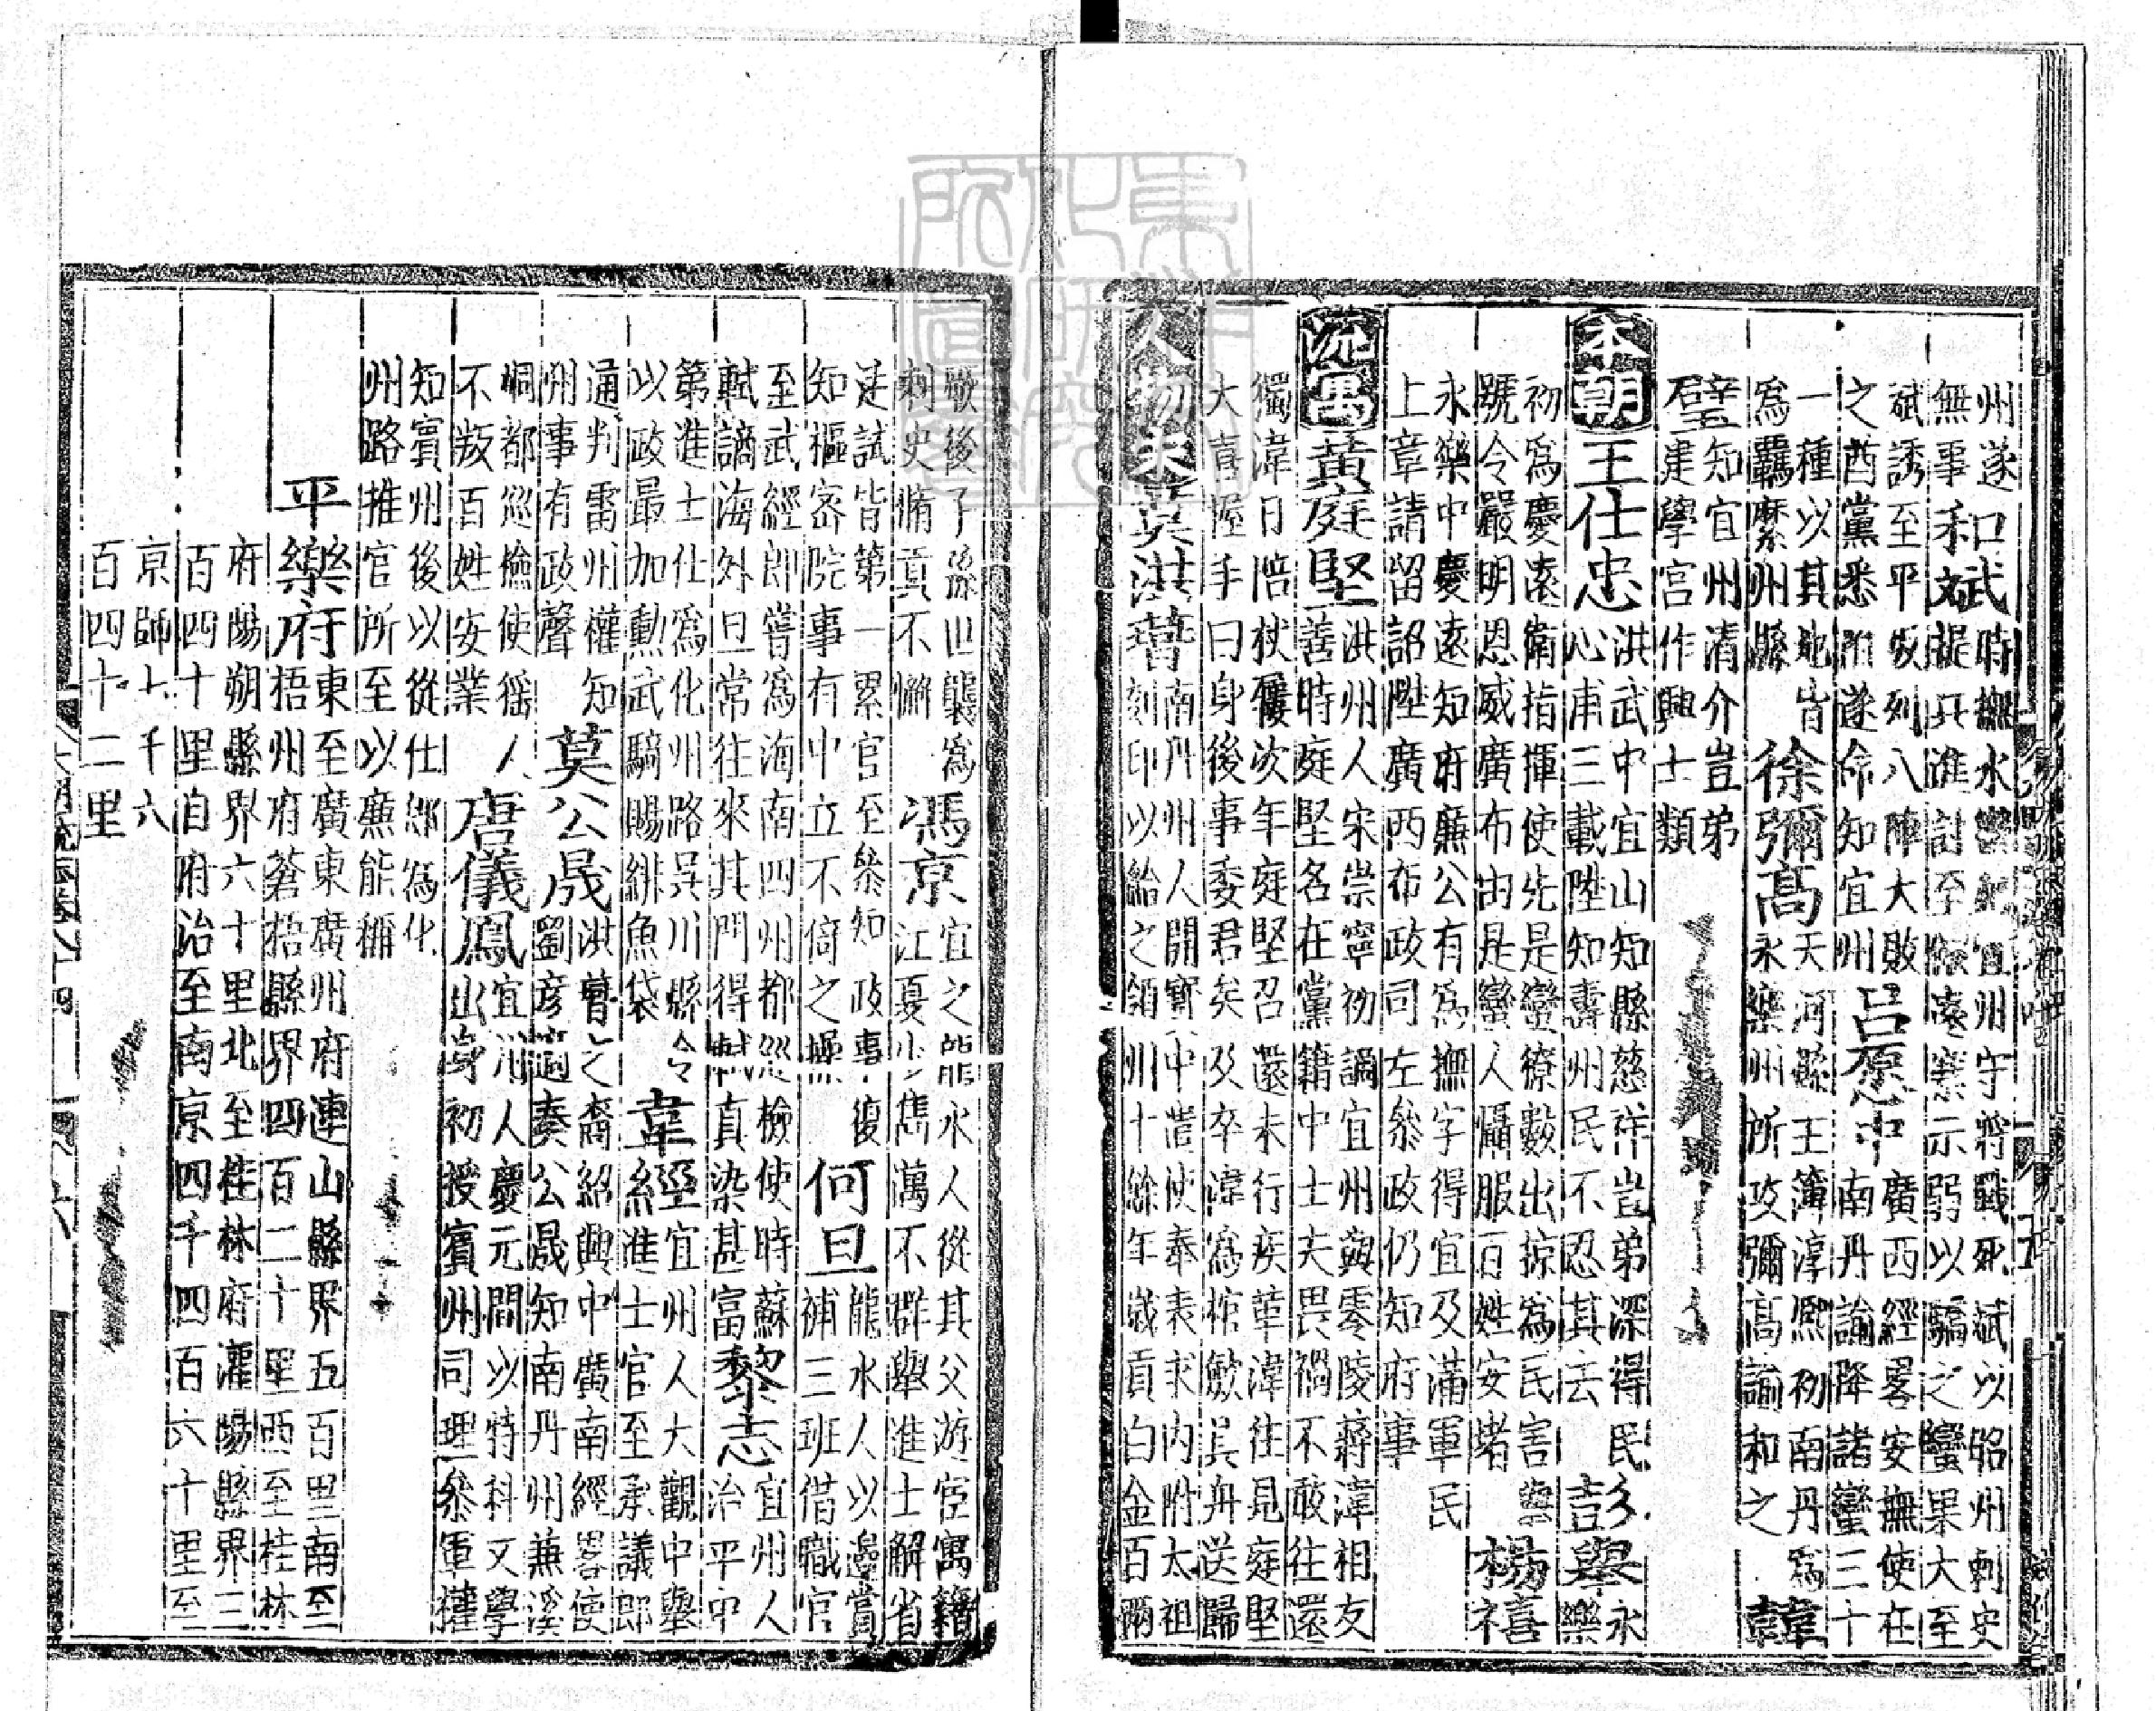 州遂口斌時撫水宜州守將戰死斌以昭州刺史
無事和斌提兵進討至懷遠寨示弱以驕之蠻果大至
斌誘至平坂列八陣大敗廣西經畧安撫使在
之酋黨悉附遂命知宜州呂愿中南丹諭降諸蠻三十
一種以其地皆天河縣王簿淳熙初南丹爲
爲羈縻州縣徐彌高永樂州所攻彌高諭和之韓
璧知宜州清介豈弟
建學宮作興士類
本朝王仕忠洪武中宜山知縣慈祥豈弟深得民
心甫三載陞知壽州民不忍其去彭舉永樂
初爲慶遠衛指揮使先是蠻獠數出掠爲民害
號令嚴明恩威廣布由是蠻人懾服百姓安堵楊禧
永樂中慶遠知府廉公有爲撫字得宜及滿軍民
上章請留詔陞廣西布政司左叅政仍知府事
流寓黃庭堅洪州人宋崇寧初謫宜州與零陵蔣湋相友
善時庭堅名在黨籍中士夫畏禍不敢往還
獨湋日陪杖屨次年庭堅召還未行疾革湋往見庭堅
大喜握手曰身後事委君矣及卒湋爲棺斂具舟送歸
人物宋莫洪䔨南丹州人開寶中遣使奉表求內附太祖
刻印以給之領州十餘年歲貢白金百兩
歿後子孫世襲爲
刺史脩貢不懈馮京宜之龍水人從其父游宦寓籍
江夏少雋邁不群舉進士解省
廷試皆第一累官至叅知政事復
知樞密院事有中立不倚之操何旦龍水人以邊賞
補三班借職官
至武經郎嘗爲海南四州都巡檢使時蘇
軾謫海外旦常往來其門得軾真染甚富黎志宜州人
治平中
第進士仕爲化州路吳川縣令
以政最加勳武騎賜緋魚袋韋經宜州人大觀中舉
進士官至承議郎
通判雷州權知
州事有政聲莫公晟洪䔨之裔紹興中廣南經畧使
劉彥適奏公晟知南丹州兼溪
峒都巡檢使猺人
不叛百姓安業唐儀鳳宜州人慶元間以特科文學
出身初授賓州司理叅軍權
知賓州後以從仕郎爲化
州路推官所至以廉能稱
平樂府東至廣東廣州府連山縣界五百里南至
梧州府蒼梧縣界四百二十里西至桂林
府陽朔縣界六十里北至桂林府灌陽縣界三
百四十里自府治至南京四千四百六十里至
京師七千六
百四十二里